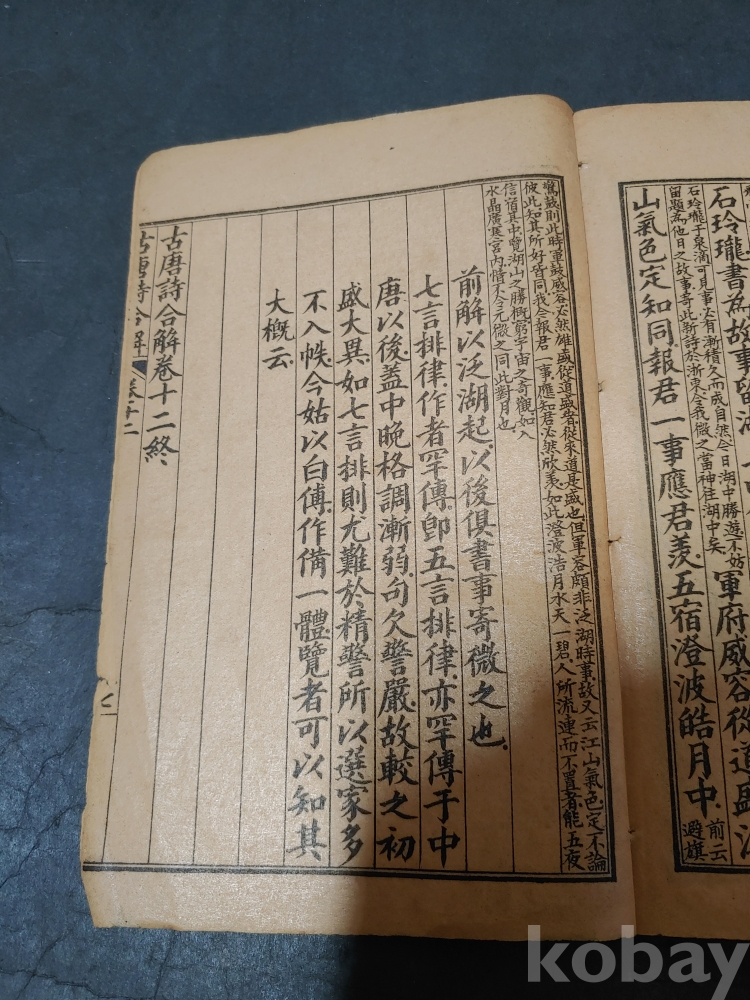 石玲瓏書為故事留湖
石玲瓏于泉滴可見事必有漸積久而成自然今日湖中勝遊不妨
留題為他日之故事寄此新詩於浙東令我微之當神往湖中矣
軍府威容從道盛江
山氣色定知同報君一事應君羨五宿澄波皓月中
前云
避旗
鷩鼓則此時軍鼓威容必然雄盛從道盛者從來道是盛也但軍容頗非泛湖時事故又云江山氣色定不論
彼此知其所好皆同我今報君一事應知君必然欣羨如此澄波浩月水天一碧人所流連而不置者能五夜
信宿其中覓湖山之勝概窮宇宙之奇觀如入
水晶廣寒宮内惜不令元微之同此對月也
前解以泛湖起以後俱書事寄微之也
七言排律作者罕傳即五言排律亦罕傳于中
唐以後蓋中晚格調漸弱句欠警嚴故較之初
盛大異如七言排則尤難於精警所以選家多
不入帙今姑以白傅作備一體覽者可以知其
大概云
古唐詩合解卷十二終
古唐詩合解 卷十二
kobay